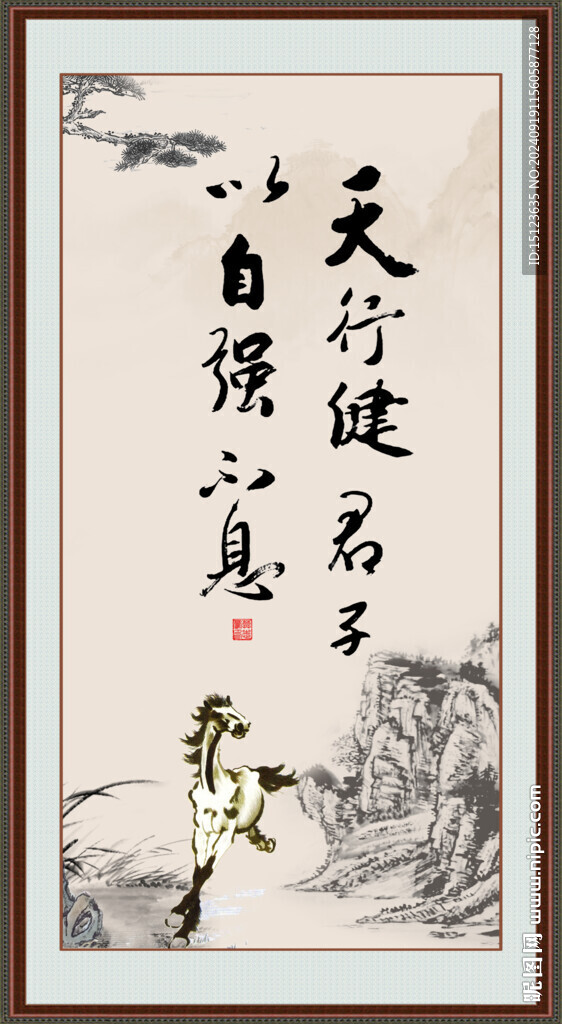 天行健君子
以自强不息
ID:15123635 NO:20240919115605877128
昵图网 www.nipic.com